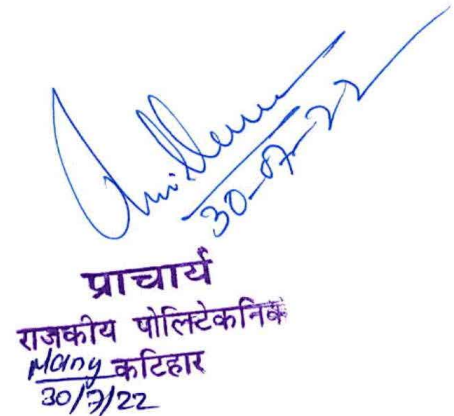 30-07-22
प्राचार्य
राजकीय पोलिटेकनिक
कटिहार
30/7/22